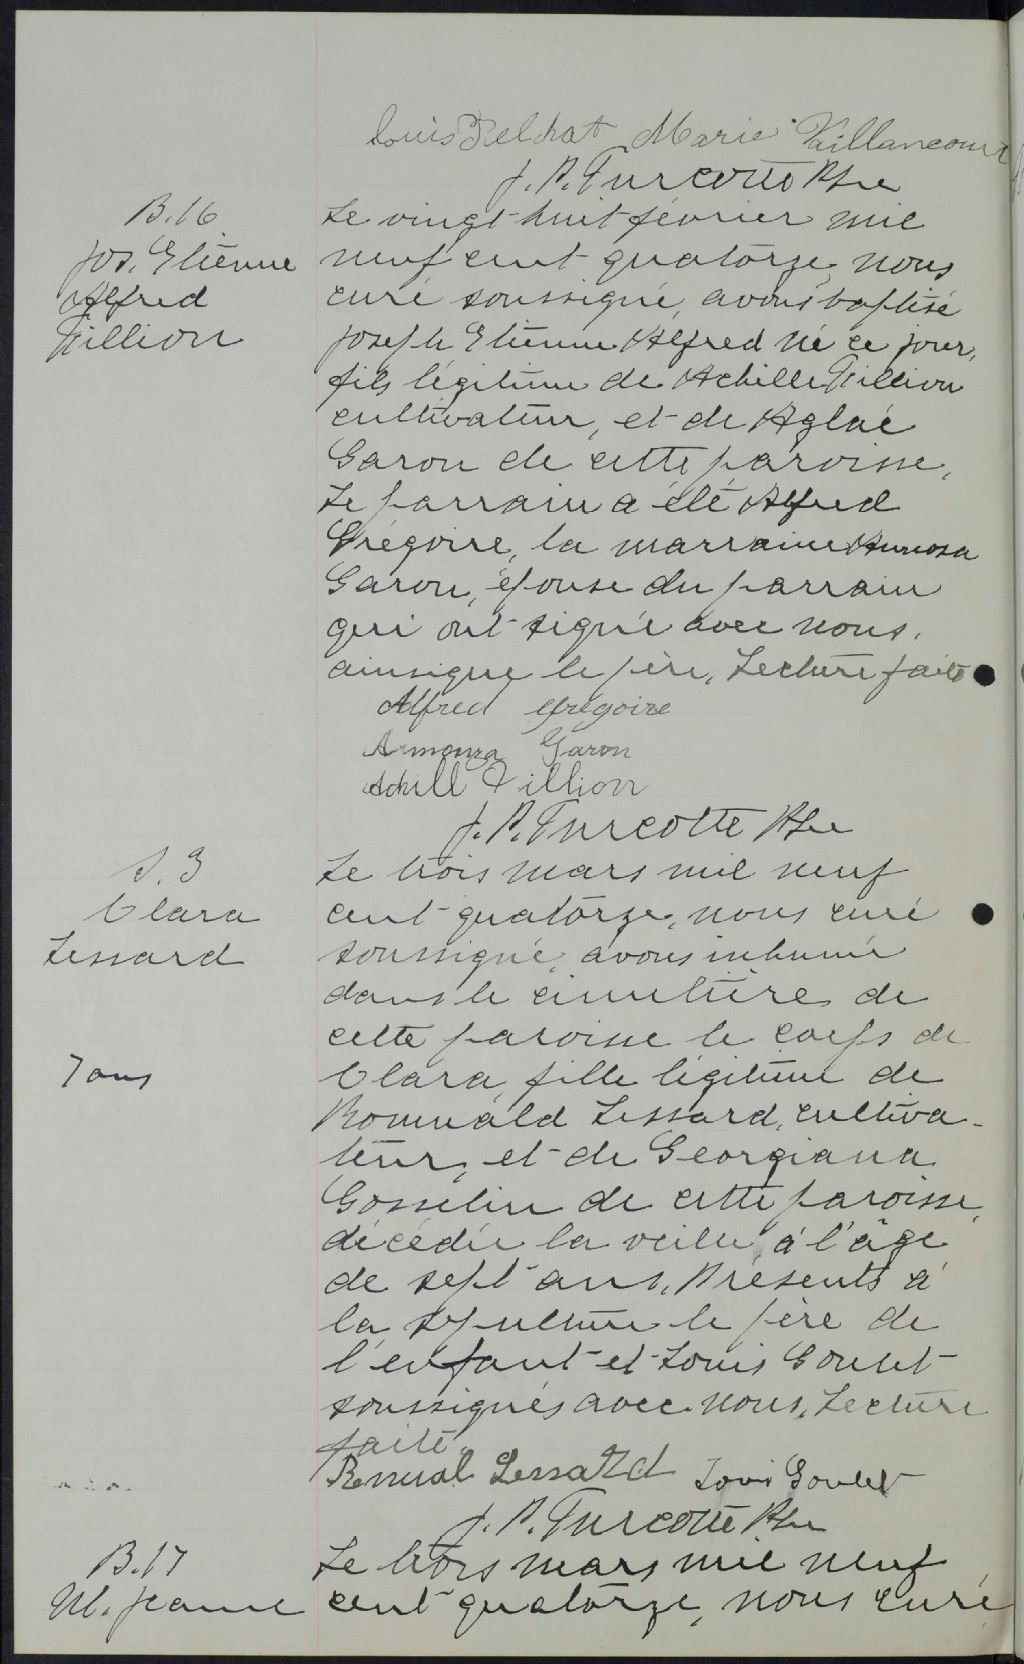 Louis Pelchat Marie Vaillancour
J. A. Turcotte Ptre
B.16
Jos. Etienne
Alfred
Fillion
Le vingt-huit février mil
neuf cent quatorze, nous
curé soussigné, avons baptisé
Joseph Etienne Alfred né ce jour,
fils légitime de Achille Fillion
cultivateur, et de Aglaé
Garon de cette paroisse,
Le parrain a été Alfred
Grégoire, la marraine
Garon, épouse du parrain
qui ont signé avec nous,
ainsi que le père, Lecture faite
Alfred Grégoire
Armonza Garon
Achill Fillion
J. A. Turcotte Ptre
S. 3
Clara
Lessard
7 ans
Le trois mars mil neuf
cent quatorze, nous curé
soussigné, avons inhumé
dans le cimetière de
cette paroisse le corps de
Clara, fille légitime de
Romuald Lessard, cultiva-
teur, et de Georgiana
Gosselin de cette paroisse,
décédée la veille, à l'âge
de sept ans, Présents à
la sépulture le père de
l'enfant et Louis Goulet
soussignés avec nous, Lecture
faite.
Romual Lessard Louis Goulet
J. A. Turcotte Ptre
B.17
M. Jeanne
Le trois mars mil neuf
cent quatorze, nous curé